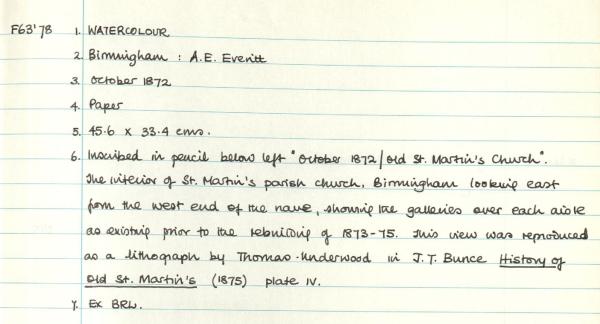 F63'78 1. WATERCOLOUR
2. Birmingham : A.E. Everitt
3. October 1872
4. Paper
5. 45.6 x 33.4 cms.
6. Inscribed in pencil below left "October 1872/Old St. Martin's Church".
The interior of St. Martin's parish church, Birmingham looking east
from the west end of the nave, showing the galleries over each aisle
as existing prior to the rebuilding of 1873-75. This view was reproduced
as a lithograph by Thomas Underwood in J.T. Bunce History of
Old St. Martin's (1875) plate IV.
7. Ex BRL.